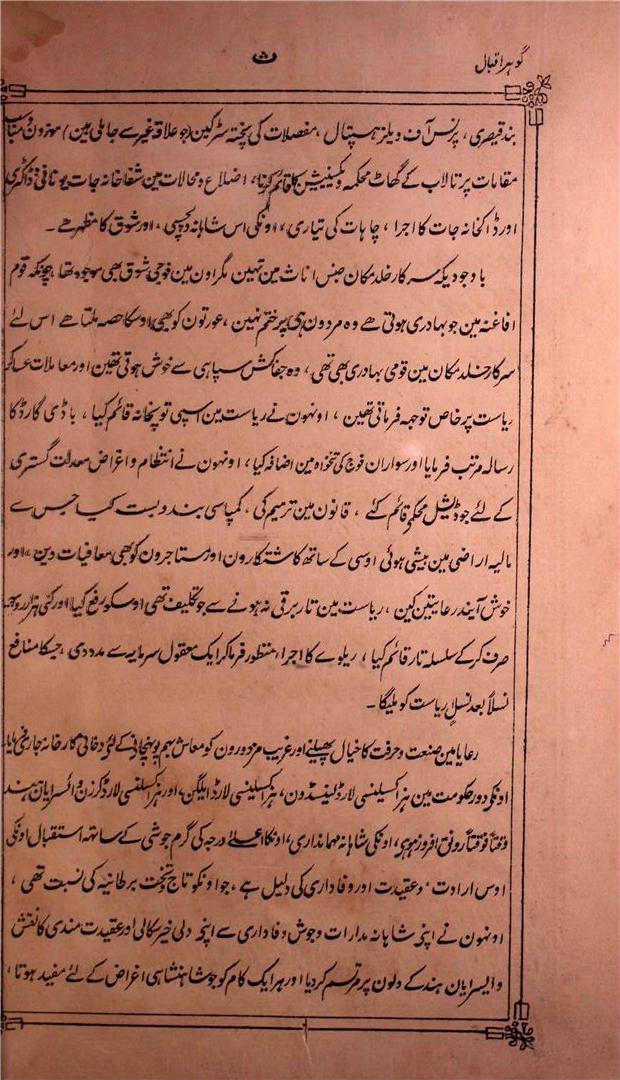 گوہر اقبال
۵
بند قیصری، پرنس آف ویلز ہسپتال، مفصلات کی پختہ سڑکین (جو علاقہ غیر سے جا ملی ہین) موزون
مقامات پر تالاب کے گھاٹ محکمہ ویکسینیشن کا قائم کرنا، اضلاع و محالات مین شفاخانہ جات یونانی ڈاکٹری
اور ڈاکخانہ جات کا اجرا، چاہات کی تیاری، اونکی اس شاہانہ دلچسپی، اور شوق کا مظہر ہے۔
باوجودیکہ سرکار خلد مکان جنس اناث مین تہین مگر اون مین فوجی شوق بھی موجود تھا چونکہ قوم
افاغنہ مین جو بہادری ہوتی ہے وہ مردون ہی پر ختم نہین، عورتون کو بھی اوسکا حصہ ملتا ہے اس لئے
سرکار خلد مکان مین قومی بہادری بھی تھی، وہ جفاکش سپاہی سے خوش ہوتی تھین اور معاملات عساکر
ریاست پر خاص توجہ فرماتی تھین، اونہون نے ریاست مین اسپی توپخانہ قائم کیا، باڈی گارڈ کا
رسالہ مرتب فرمایا اور سواران فوج کی تنخواہ مین اضافہ کیا، اونہون نے انتظام و اغراض معدلت گستری
کے لئے جوڈیشل محکمے قائم کئے، قانون مین ترمیم کی، کمپاسی بندوبست کیا جس سے
مالیہ اراضی مین بیشی ہوئی اوسی کے ساتھ کاشتکارون اور مستاجرون کو بھی معافیات دین، اور
خوش آیند رعایتین کین، ریاست مین تار برقی نہ ہونے سے جو تکلیف تھی اوسکو رفع کیا اور کئی ہزار روپیہ
صرف کرکے سلسلہ تار قائم کیا، ریلوے کا اجرا منظور فرما کر ایک معقول سرمایہ سے مدد دی، جسکا منافع
نسلاً بعد نسلٍ ریاست کو ملیگا۔
رعایا مین صنعت و حرفت کا خیال پھیلنے اور غریب مزدورون کو معاش بہم پہنچانے کے لئے دخانی کارخانہ جاری فرمایا
اونکے دور حکومت مین ہز اکسیلنسی لارڈ لینسڈون، ہز اکسیلنسی لارڈ ایلگن، اور ہز اکسیلنسی لارڈ کرزن وائسرایان ہند
وقتاً فوقتاً رونق افروز ہوے، اونکی شاہانہ مہمانداری، اونکا اعلےٰ درجہ کی گرم جوشی کے ساتھ استقبال اونکی
اوس ارادت و عقیدت اور وفاداری کی دلیل ہے، جو اونکو تاج و تخت برطانیہ کی نسبت تھی،
اونہون نے اپنی شاہانہ مدارات و جوش وفاداری سے اپنے دلی خیر سگالی اور عقیدت مندی کا نقش
وایسرایان ہند کے دلون پر مرتسم کردیا اور ہر ایک کام کو جو شاہنشاہی اغراض کے لئے مفید ہوتا،